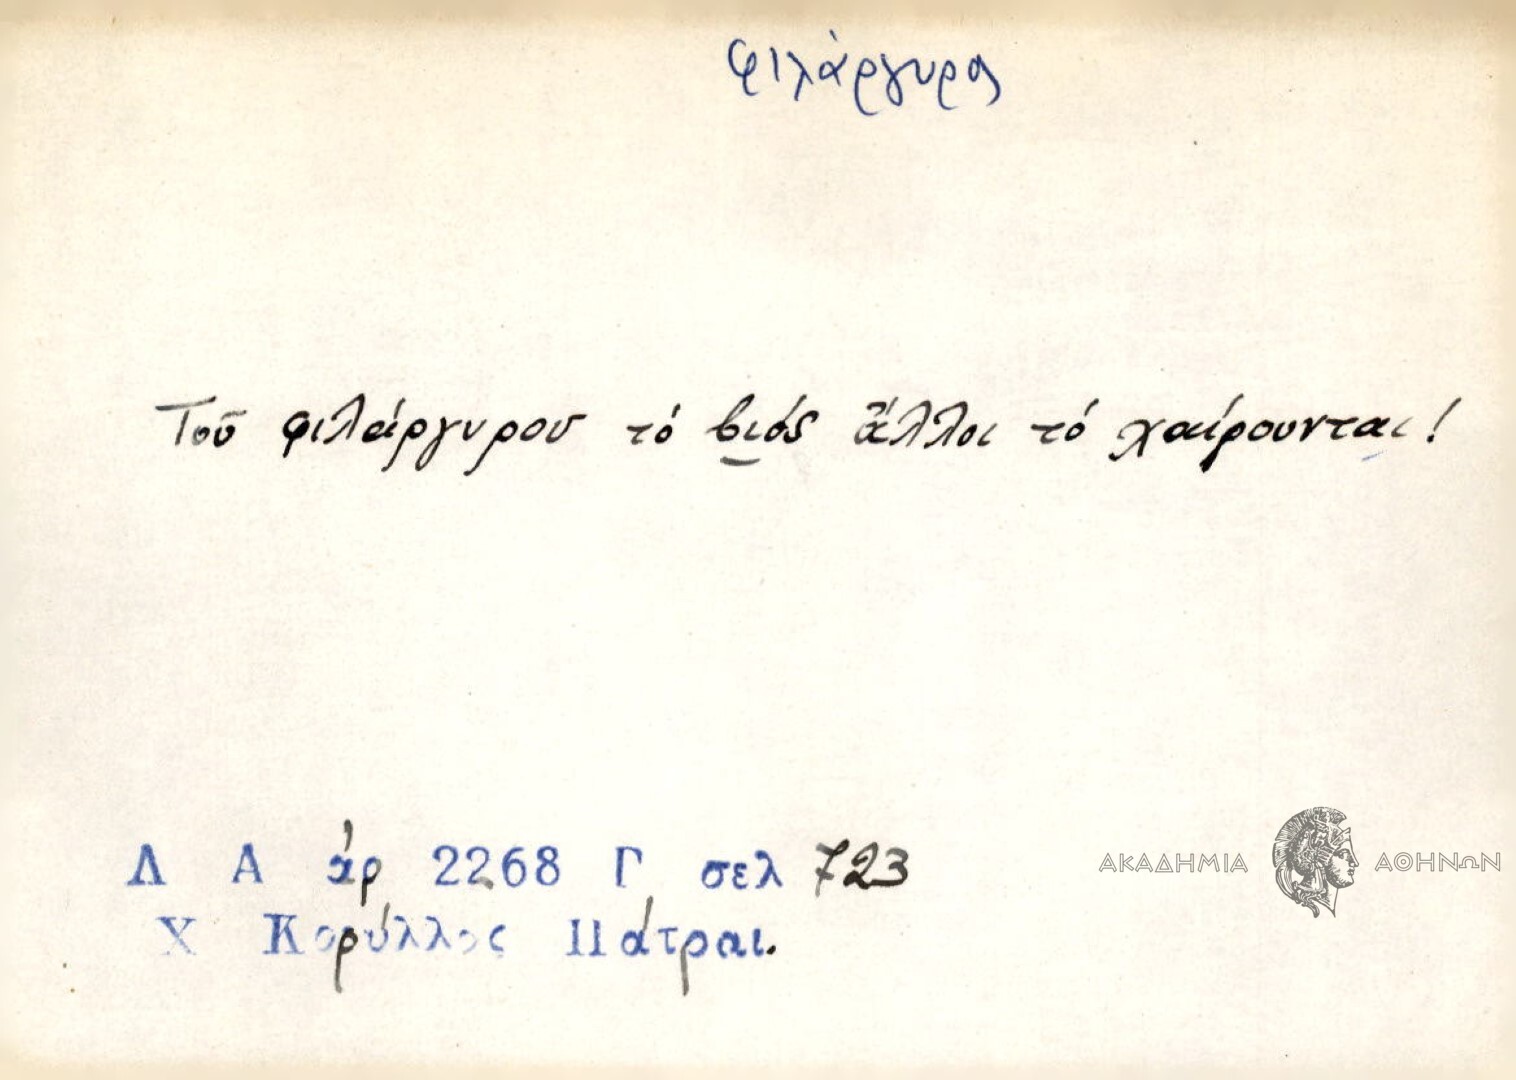 φιλάργυρος
Τοῦ φιλάργυρου τό βιός ἄλλοι τό χαίρουνται!
Λ Α ἀρ 2268 Γ σελ 723
Χ Κορύλλος Πάτραι.
ΑΚΑΔΗΜΙΑ ΑΘΗΝΩΝ